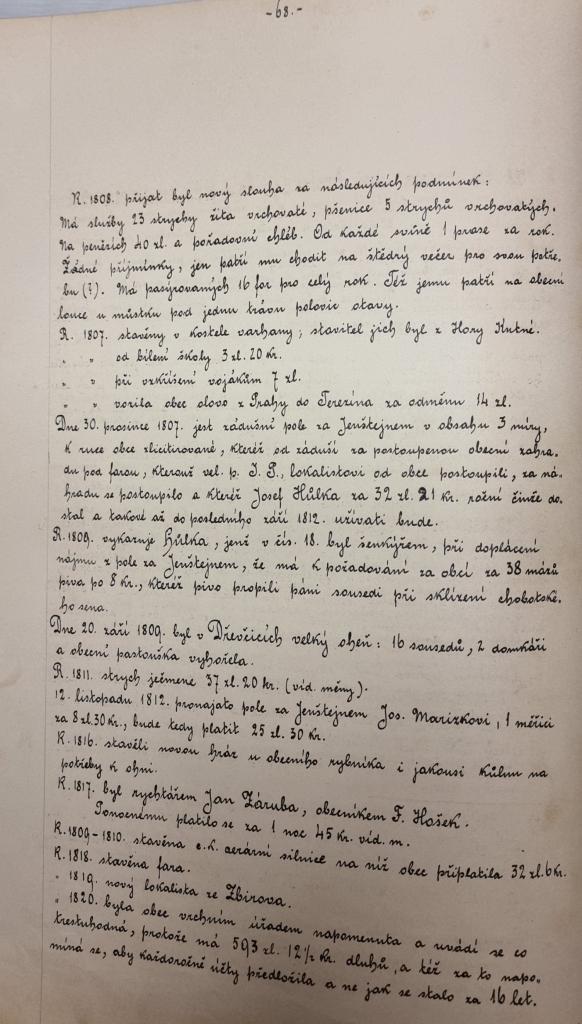 -68.-
R. 1808. přijat byl nový slouha za následujících podmínek:
Má služby 23 strychy žita vrchovaté, pšenice 5 strychů vrchovatých.
Na penězích 40 zl. a pořadovní chléb. Od každé svině 1 prase za rok.
Žádné příjmínky, jen patří mu chodit na štědrý večer pro svou potře-
bu (?). Má pasýrovaných 16 for pro celý rok. Též jemu patří na obecní
louce u můstku pod jednu trávu polovic otavy.
R. 1807. stavěny v kostele varhany; stavitel jich byl z Hory Kutné.
" " od bílení školy 3 zl. 20 kr.
" " při vzkříšení vojákům 7 zl.
" " vozila obec olovo z Prahy do Terezína za odměnu 14 zl.
Dne 30. prosince 1807. jest zádušní pole za Jenštejnem v obsahu 3 míry,
k ruce obce zlicitirované, kteréž od záduší za postoupenou obecní zahra-
du pod farou, kterouž vel. p. J. P., lokalistovi od obce postoupili, za ná-
hradu se postoupilo a kteréž Josef Hůlka za 32 zl. 21 kr. roční činže do-
stal a takové až do posledního září 1812. užívati bude.
R. 1809. vykazuje Hůlka, jenž v čís. 18. byl šenkýřem, při doplácení
nájmu z pole za Jenštejnem, že má k pořadování za obcí za 38 mázů
piva po 8 kr., kteréž pivo propili páni sousedi při sklízení chobotské-
ho sena.
Dne 20. září 1809. byl v Dřevčicích velký oheň: 16 sousedů, 2 domkáři
a obecní pastouška vyhořela.
R. 1811. strych ječmene 37 zl. 20 kr. (víd. měny).
12. listopadu 1812. pronajato pole za Jenštejnem Jos. Marizkovi, 1 měřici
za 8 zl. 30 kr., bude tedy platit 25 zl. 30 kr.
R. 1816. stavěli novou hráz u obecního rybníka i jakousi kůlnu na
potřeby k ohni.
R. 1817. byl rychtářem Jan Záruba, obecníkem F. Hošek.
Ponocnému platilo se za 1 noc 45 kr. víd. m.
R. 1809-1810. stavěna c. k. aerární silnice na níž obec připlatila 32 zl. 6 kr.
R. 1818. stavěna fara.
" 1819. nový lokalista ze Zbirova.
" 1820. byla obec vrchním úřadem napomenuta a uvádí se co
trestuhodná, protože má 593 zl. 12½ kr. dluhů, a též za to napo-
míná se, aby každoročně účty předložila a ne jak se stalo za 16 let.